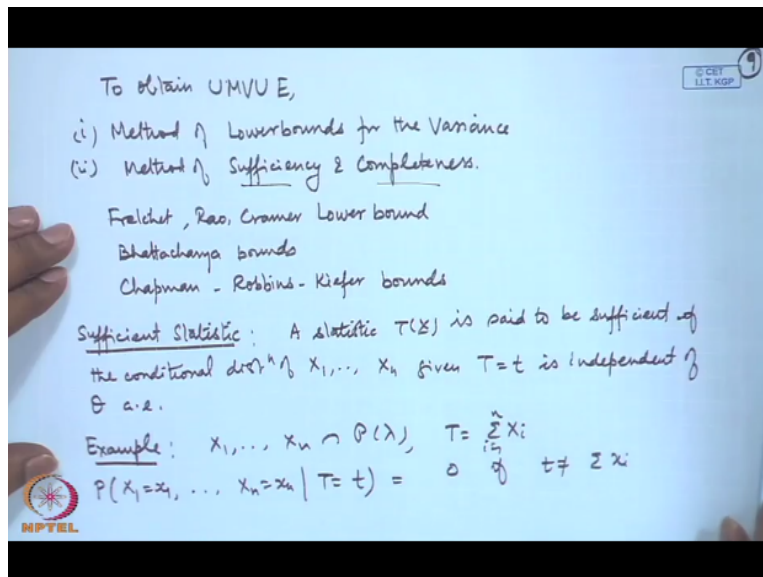 9
© CET
I.I.T. KGP
To obtain UMVUE,
(i) Method of Lower bounds for the Variance
(ii) Method of Sufficiency & Completeness.
Frechet, Rao, Cramer Lower bound
Bhattacharya bounds
Chapman - Robbins - Kiefer bounds
Sufficient Statistic : A statistic T(X) is said to be sufficient if
the conditional distⁿ of X₁, .., Xₙ given T=t is independent of
θ a.e.
Example : X₁, ..., Xₙ ~ P(λ), T = Σᵢ₌₁ⁿ Xᵢ
P(X₁=x₁, ... Xₙ=xₙ | T=t) = 0 if t≠ Σxᵢ
NPTEL